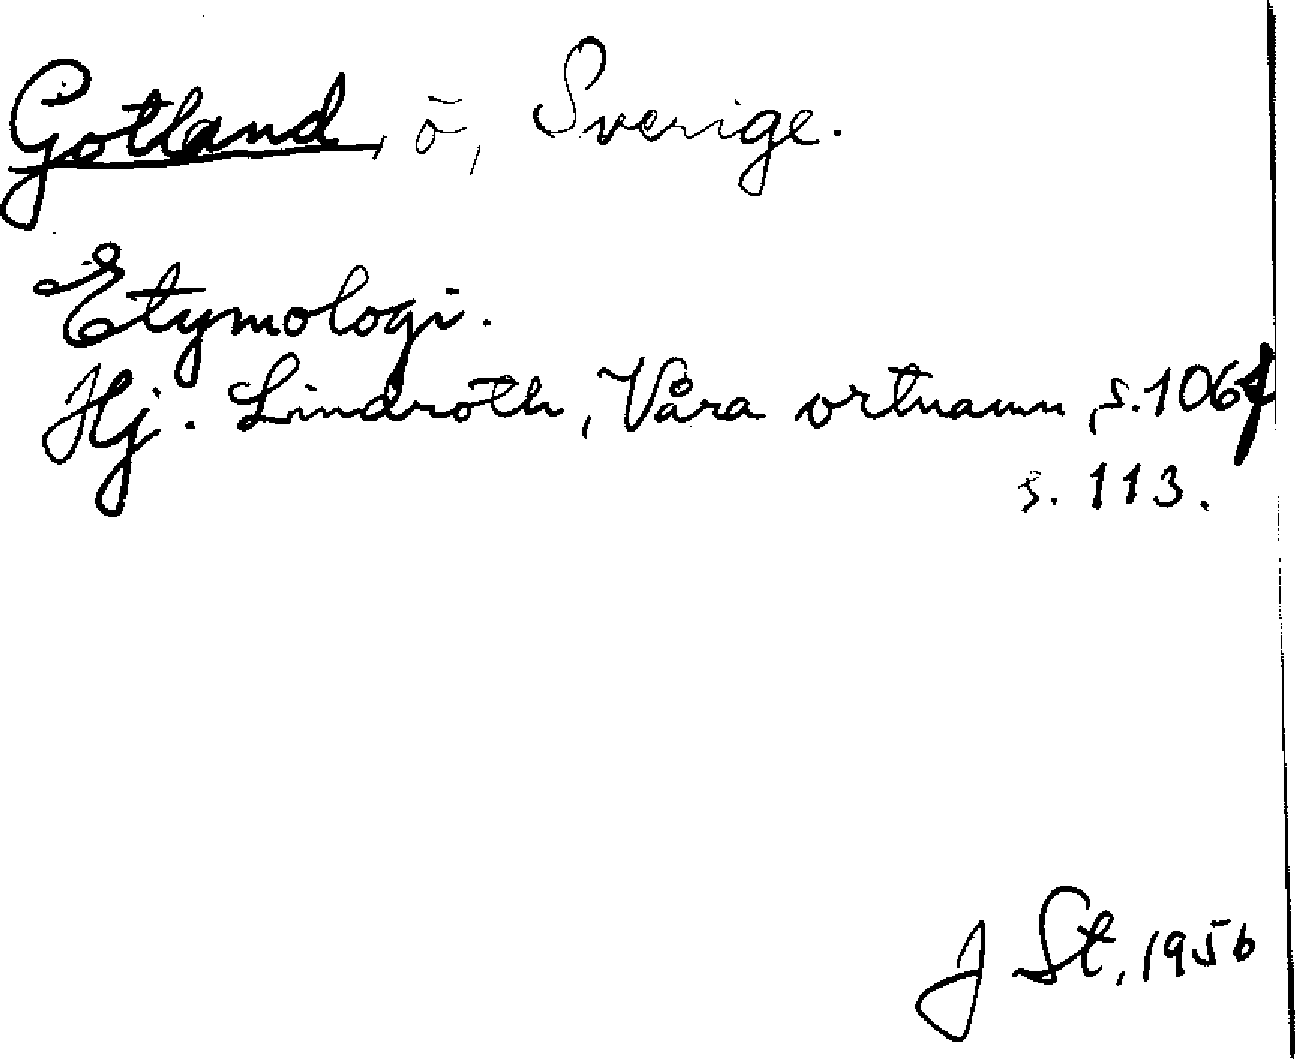 Gotland, ö, Sverige.
Etymologi.
Hj. Lindroth, Våra ortnamn, s. 106f
s. 113.
J St, 1956